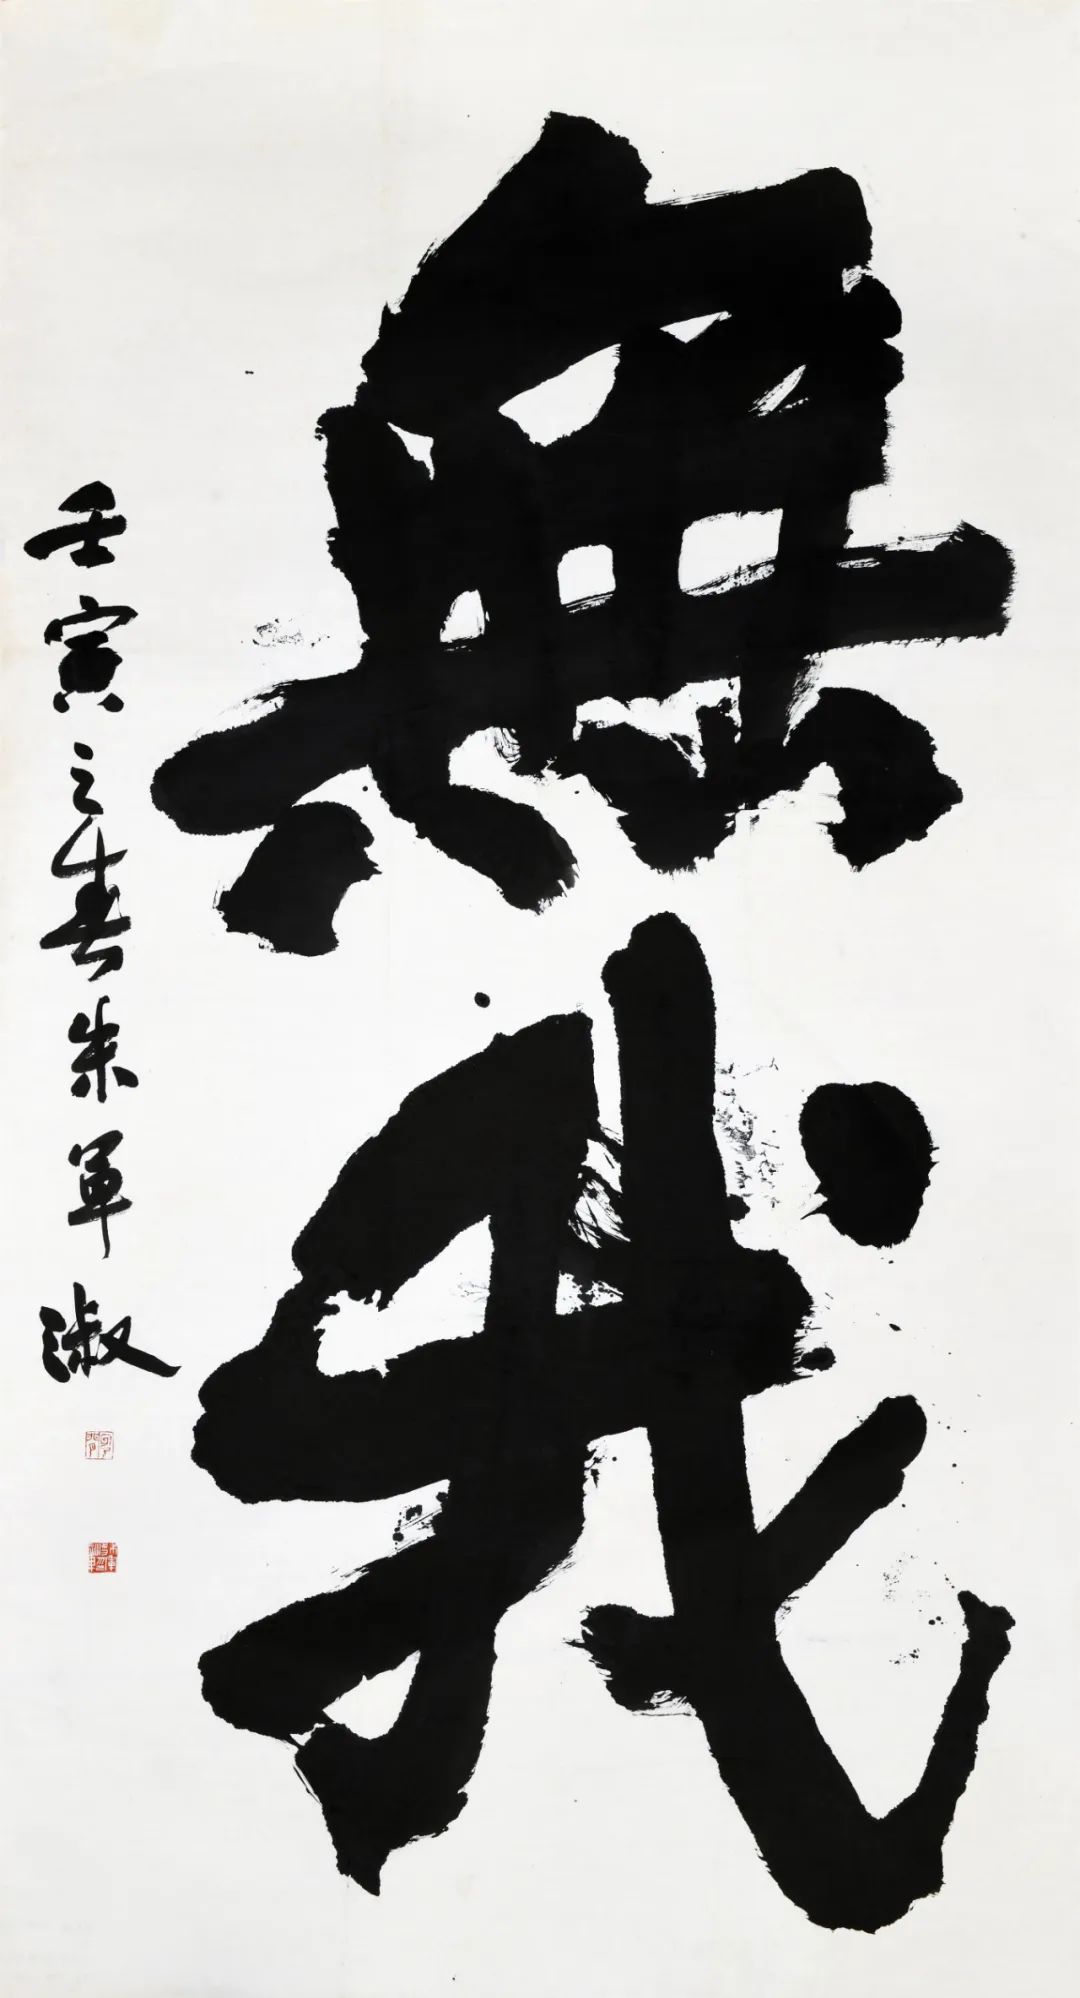 無我
壬寅之春朱軍淑